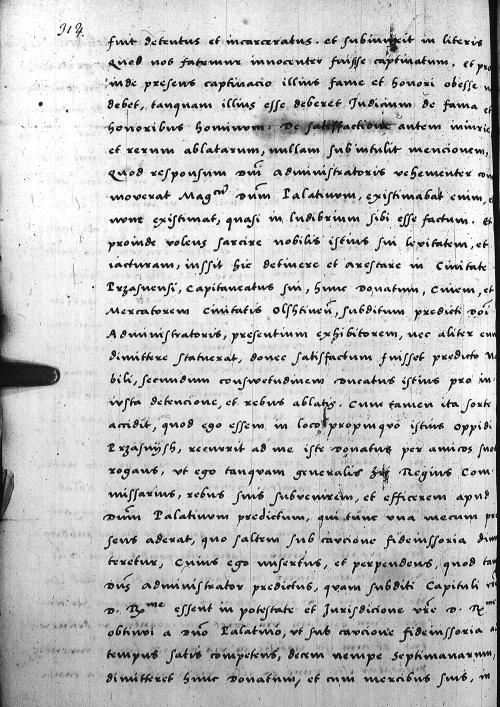 312.
fuit detentus et incarceratus. et subiungit in literis
quod nos fatemur innocenter fuisse captivatum, et pro
inde presens captivacio illius fame et honori obesse n
debet, tanquam illius esse deberet Iudicium de fama et
honoribus hominum. De satisfactione autem iniurie
et rerum ablatarum, nullam subintulit mencionem,
quod responsum Dni Administratoris vehementer com
moverat Magcum Dnm Palatinum, existimabat enim, e
nunc existimat, quasi in ludibrium sibi esse factum. Et
proinde volens sarcire nobilis istius sui levitatem, et
iacturam, iussit hic detinere et arestare in Civitate
Przasnensi, Capitaneatus sui, hunc Donatum, Civem, et
Mercatorem Civitatis Olshtinen, subditum predicti Dni
Administratoris, presentium exhibitorem, nec aliter eum
dimittere statuerat, donec satisfactum fuisset predicto no
bili, secundum conswetudinem Ducatus istius pro in
iusta detencione, et rebus ablatis. Cum tamen ita sorte
accidit, quod ego essem in loco propinquo istius oppidi
Przasnysh, recurrit ad me iste Donatus per amicos suos
rogans, ut ego tanquam generalis Regius Com
missarius, rebus suis subvenirem, et efficerem apud
Dnm Palatinum predictum, qui tunc una mecum pre
sens aderat, quo saltem sub caucione fideiussoria dim
teretur, Cuius ego misertus, et perpendens, quod tam
Dns Administrator predictus, quam subditi Capituli
D. Rme essent in potestate et Jurisdicione vre D. Rme
obtinui a Dno Palatino, ut sub caucione fideiussoria a
tempus satis competens, decem nempe septimanarum,
dimitteret hunc Donatum, et cum mercibus suis, in